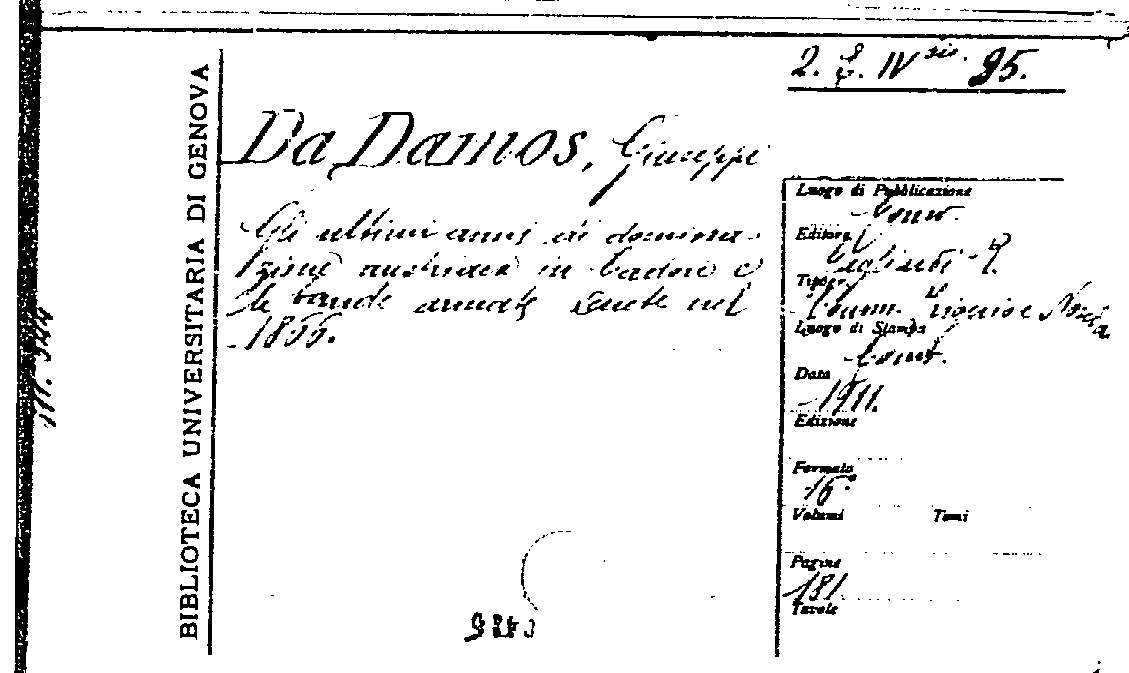 BIBLIOTECA UNIVERSITARIA DI GENOVA
95.
Da Damos, Giuseppe
Gli ultimi anni di domina-
zione austriaca in Cadore e
le bande armate venete nel
1866.
Luogo di Pubblicazione
Como.
Editore
Tipogr.
Luogo di Stampa
Como.
Data
1911.
Edizione
Formato
16°
Volumi Tomi
Pagine
181
Tavole